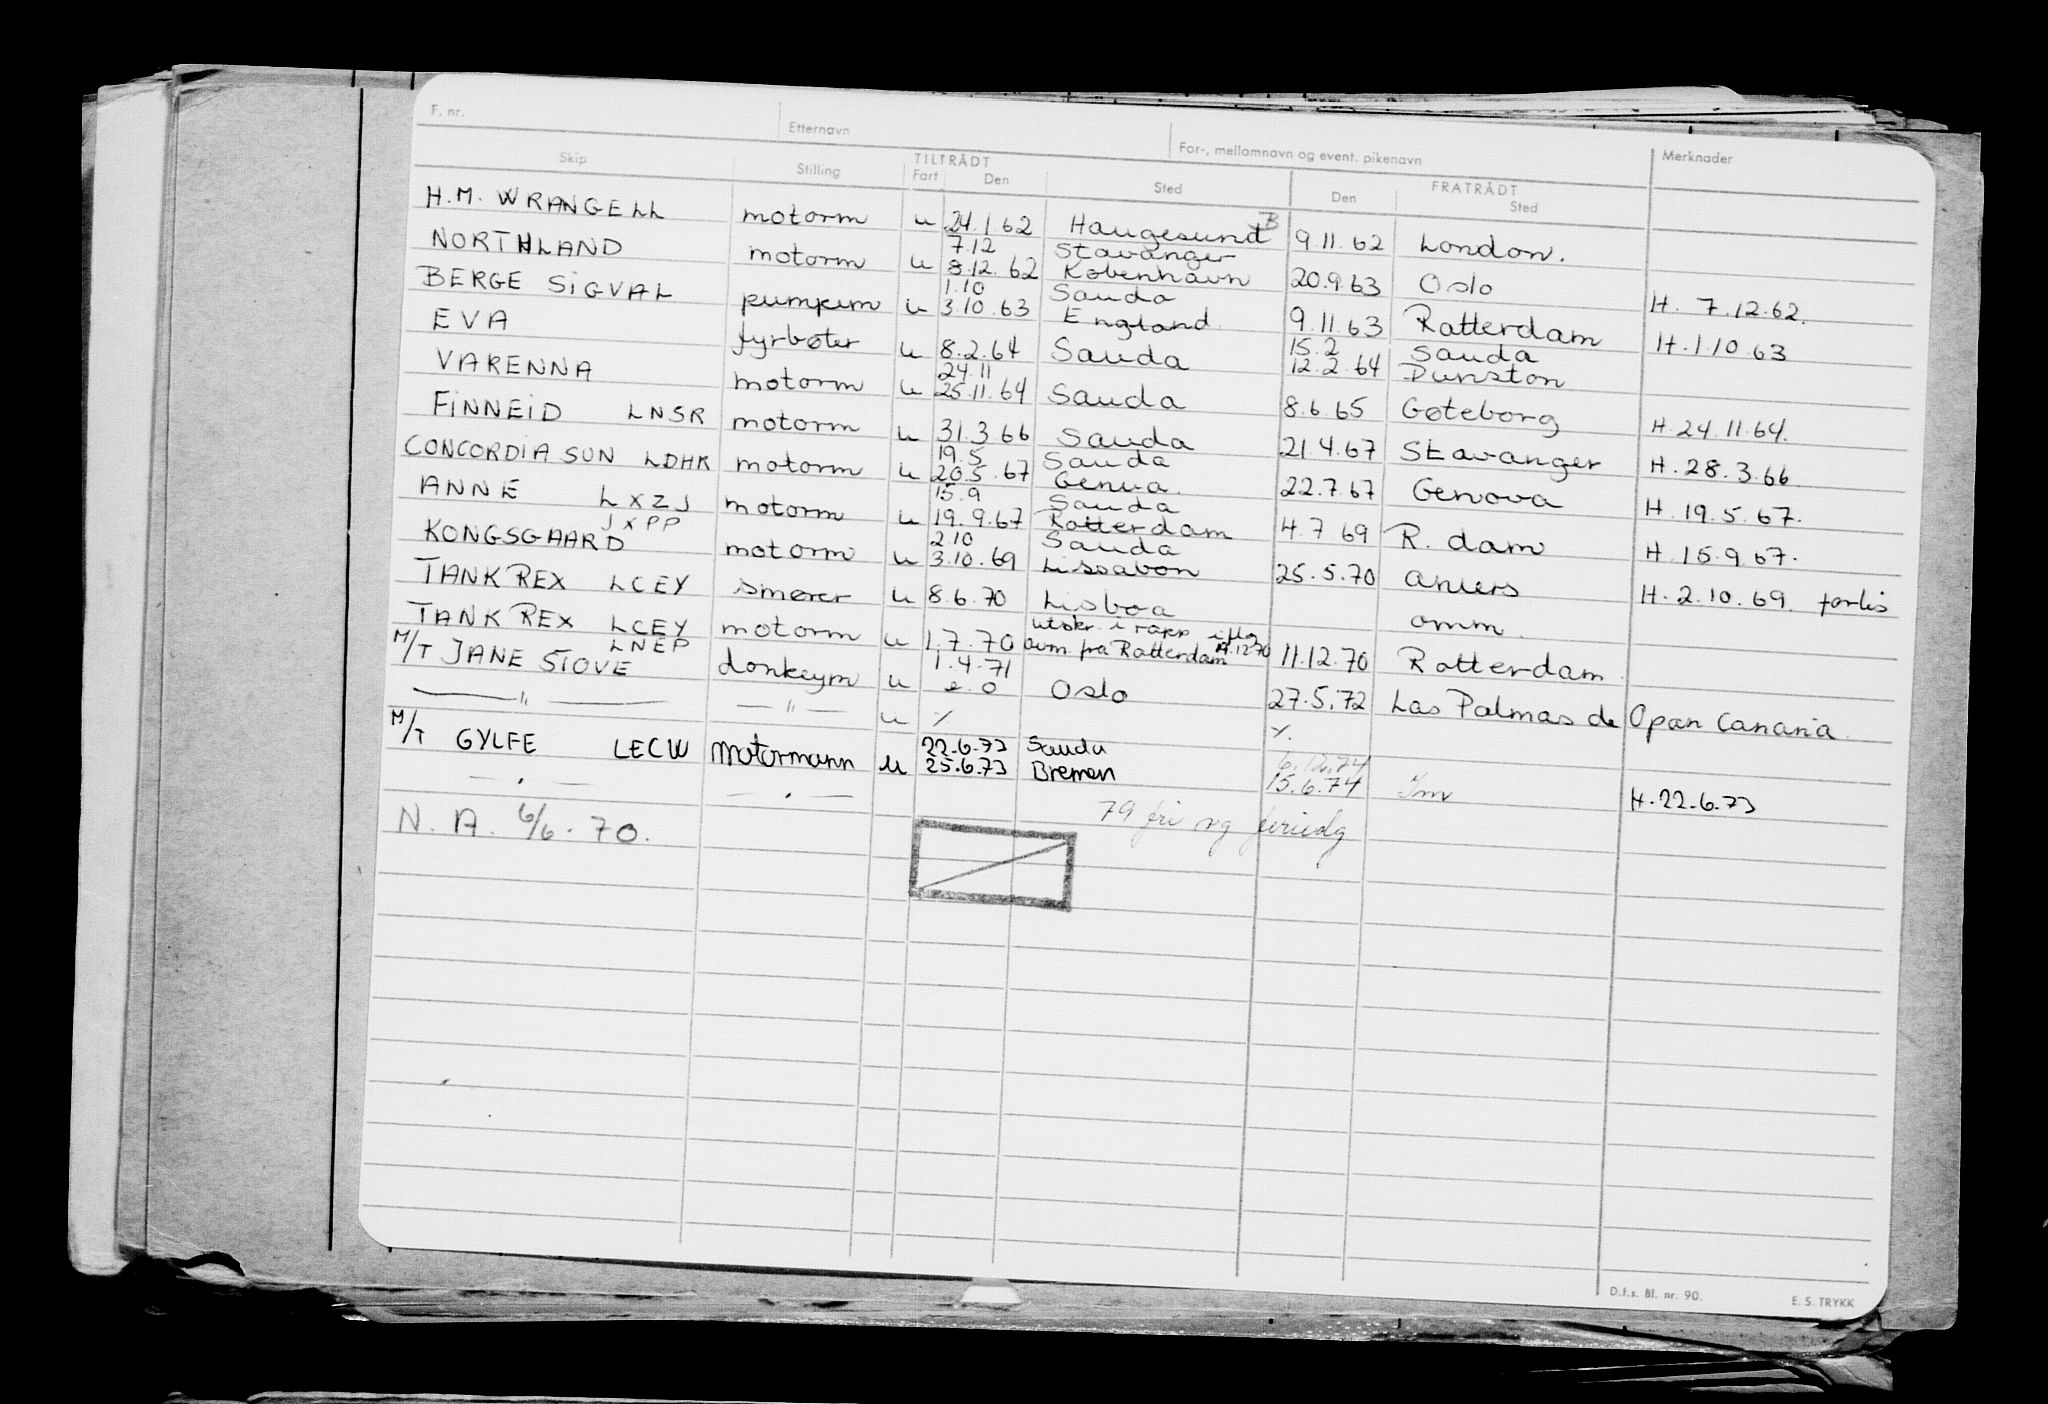 F. nr. Etternavn For-, mellomnavn og event. pikenavn Merknader
Skip Stilling TILTRÅDT FRATRÅDT
Fart Den Sted Den Sted
H.M. WRANGELL motorm u 24.1.62 Haugesund B 9.11.62 London.
7.12 Stavanger
NORTHLAND motorm u 8.12.62 København 20.9.63 Oslo H. 7.12.62.
1.10 Sauda
BERGE SIGVAL pumpem u 3.10.63 England 9.11.63 Rotterdam H.1.10.63
15.2 Sauda
EVA fyrbøter u 8.2.64 Sauda 12.2.64 Dunston
24.11
VARENNA motorm u 25.11.64 Sauda 8.6.65 Gøteborg H.24.11.64.
FINNEID LNSR motorm u 31.3.66 Sauda 21.4.67 Stavanger H.28.3.66.
19.5 Sauda
CONCORDIA SUN LDHK motorm u 20.5.67 Genua. 22.7.67 Genova H.19.5.67.
15.9 Sauda
ANNE LXZJ motorm u 19.9.67 Rotterdam 4.7 69 R. dam H.15.9.67.
JXPP 2.10 Sauda
KONGSGAARD motorm u 3.10.69 Lissabon 25.5.70 anvers H.2.10.69.
TANK REX LCEY smører u 8.6.70 Lisboa omm.
utskr. i rapp
TANK REX LCEY motorm u 1.7.70 avm fra Rotterdam 11.12.70 11.12.70 Rotterdam
LNEP 1.4.71
M/T JANE STOVE donkeym u Oslo 27.5.72 Las Palmas de Gran Canaria
— " — — " — u % %.
22.6.73 Sauda 6.12.74
M/T GYLFE LECW Motormann u 25.6.73 Bremen 15.6.74 H.22.6.73
— " — — " —
N.A. 6/6.70. 79 fri og
D.f.s. Bl. nr. 90. E. S. TRYKK